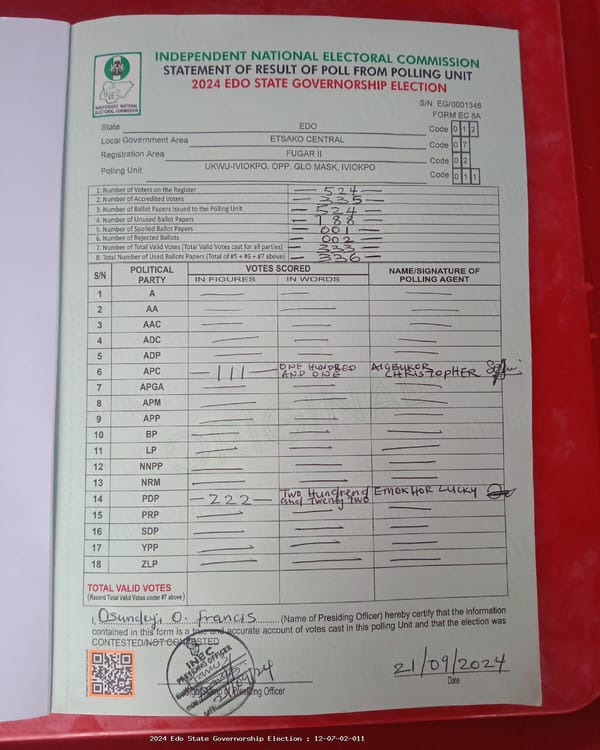 INDEPENDENT NATIONAL ELECTORAL COMMISSION
STATEMENT OF RESULT OF POLL FROM POLLING UNIT
2024 EDO STATE GOVERNORSHIP ELECTION
INEC
INDEPENDENT NATIONAL
ELECTORAL COMMISSION
S/N. EG/0001346
FORM EC 8A
State EDO Code 0 1 2
Local Government Area ETSAKO CENTRAL Code 0 7
Registration Area FUGAR II Code 0 2
Polling Unit UKWU-IVIOKPO, OPP. GLO MASK, IVIOKPO Code 0 1 1
1. Number of Voters on the Register — 524 —
2. Number of Accredited Voters — 335 —
3. Number of Ballot Papers Issued to the Polling Unit — 524 —
4. Number of Unused Ballot Papers — 188 —
5. Number of Spoiled Ballot Papers — 001 —
6. Number of Rejected Ballots — 002 —
7. Number of Total Valid Votes (Total Valid Votes cast for all parties) — 333 —
8. Total Number of Used Ballots Papers (Total of #5 + #6 + #7 above) — 336 —
S/N POLITICAL PARTY VOTES SCORED NAME/SIGNATURE OF POLLING AGENT
IN FIGURES IN WORDS
1 A — — —
2 AA — — —
3 AAC — — —
4 ADC — — —
5 ADP — — —
6 APC — 111 — ONE HUNDRED AND ONE AIGBUKOR CHRISTOPHER
7 APGA — — —
8 APM — — —
9 APP — — —
10 BP — — —
11 LP — — —
12 NNPP — — —
13 NRM — — —
14 PDP — 222 — Two Hundrend and Twenty Two EMOKHOR LUCKY
15 PRP — — —
16 SDP — — —
17 YPP — — —
18 ZLP — — —
TOTAL VALID VOTES
(Record Total Valid Votes under #7 above)
I, Osundeji O. Francis (Name of Presiding Officer) hereby certify that the information
contained in this form is a true and accurate account of votes cast in this polling Unit and that the election was
CONTESTED/NOT CONTESTED
INEC
PRESIDING OFFICER
21/09/2024
Presiding Officer
Date
2024 Edo State Governorship Election : 12-07-02-011